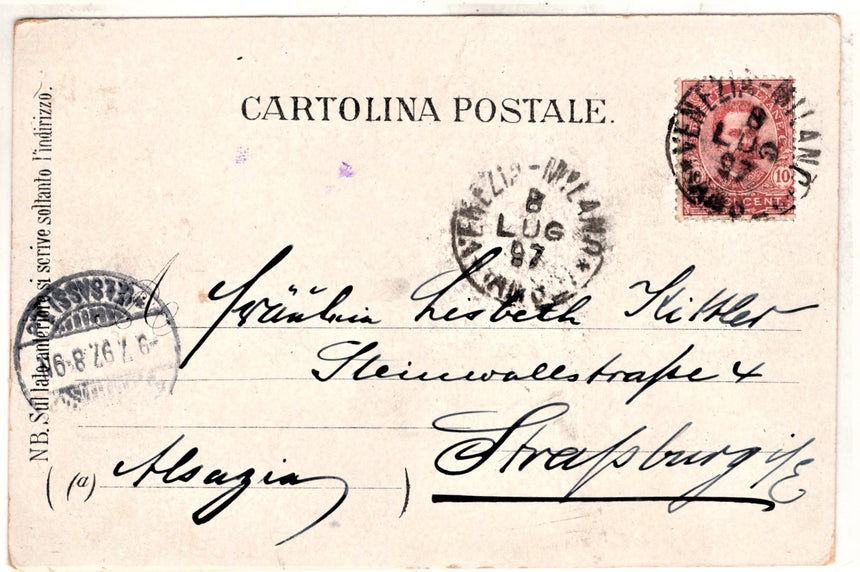 CARTOLINA POSTALE.
NB. Sul lato anteriore si scrive soltanto l'indirizzo.
10 10
CENT.
VENEZIA-MILANO
8
LUG
97
VENEZIA-MILANO
8
LUG
97
9.7.97. 8-9
Fräulein Lisbeth Kittler
Steinwallstraße 4
Straßburg i/E
(a) Alsazia